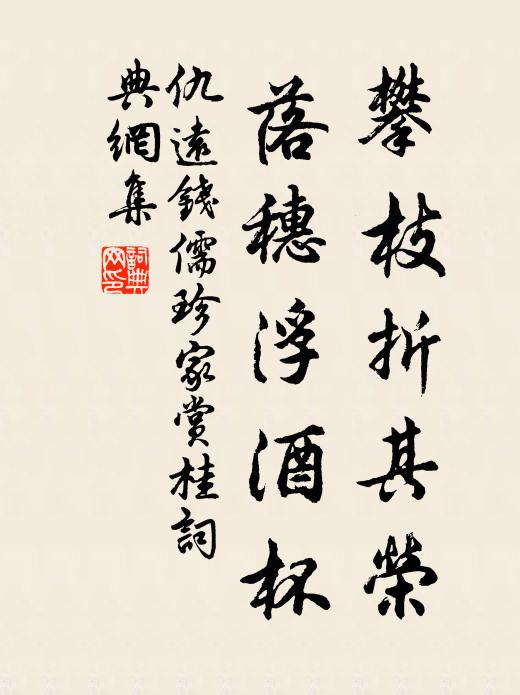 攀枝折其榮
落穗浮酒杯
仇遠錢儒珍家賞桂詞
典網集
詞典網印